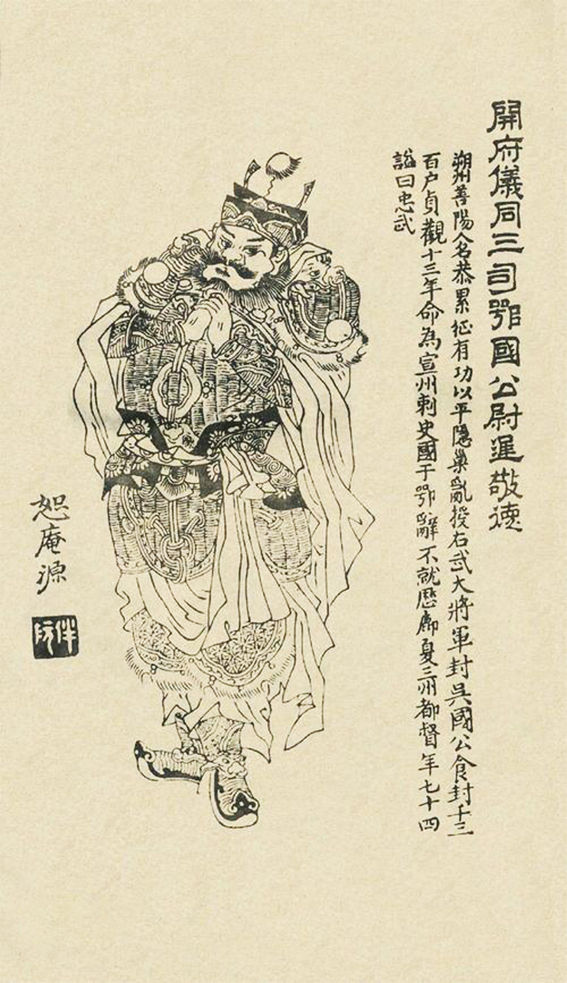 開府儀同三司鄂國公尉遲敬德
朔州善陽人名恭累征有功以平隱巢亂授右武大將軍封吳國公食封千三
百户貞觀十三年命為宣州刺史國于鄂辭不就歷鄜夏三州都督年七十四
謚曰忠武
恕庵源
伴阮